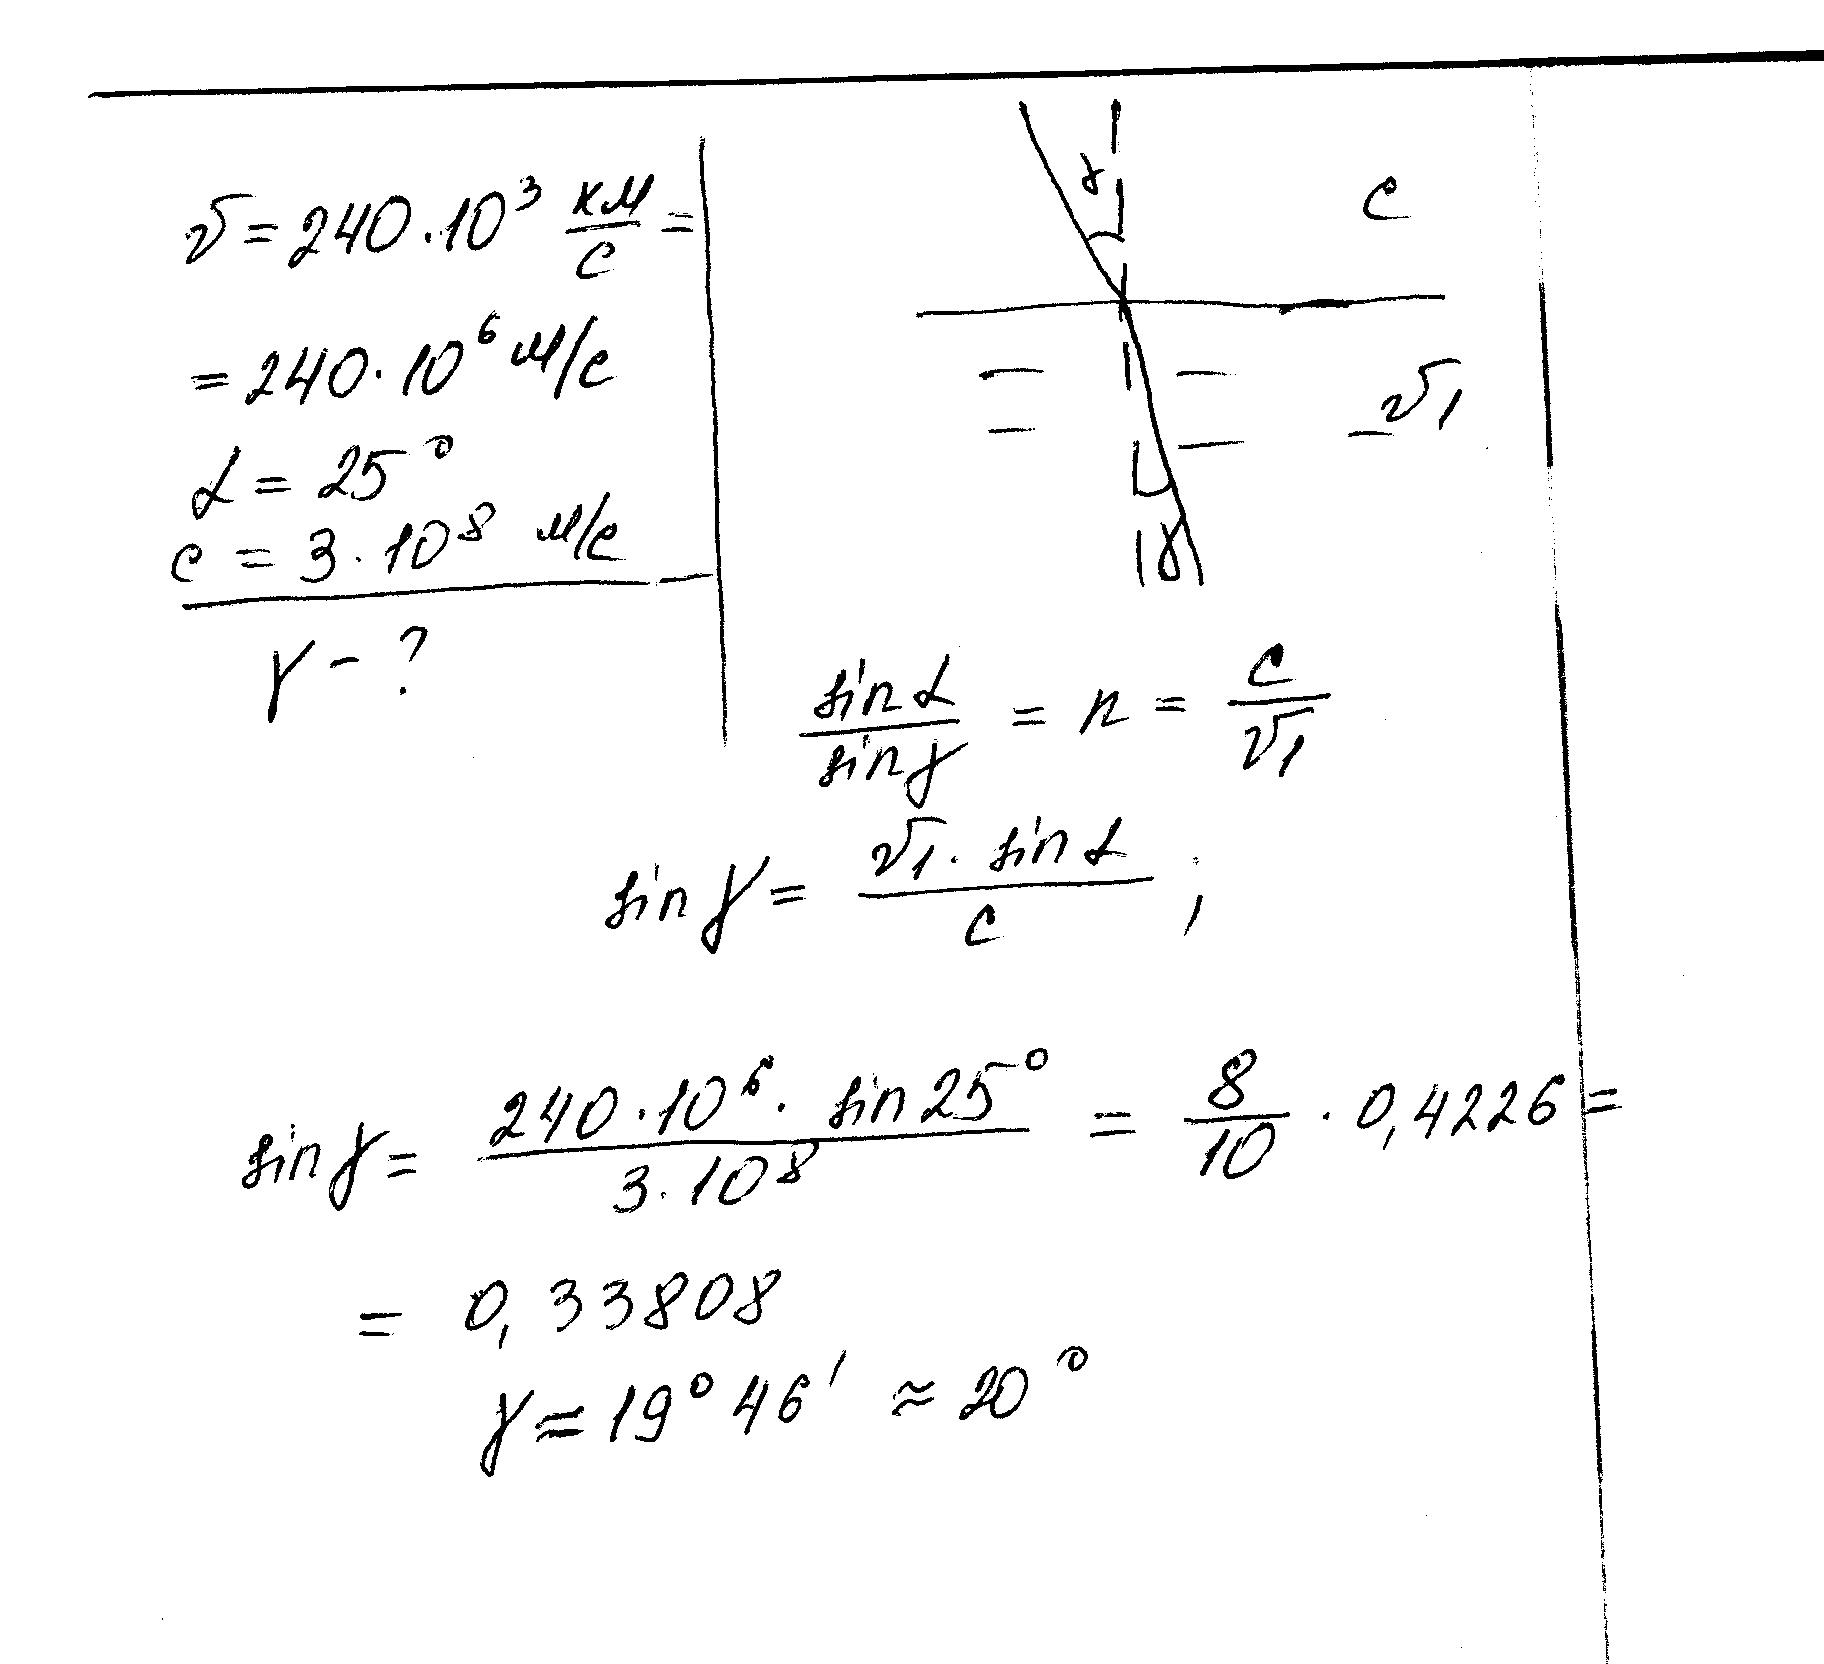 v = 240 · 10³ км/с =
= 240 · 10⁶ м/с
α = 25°
c = 3 · 10⁸ м/с
γ - ?
α
c
v₁
γ
sin α / sin γ = n = c / v₁
sin γ = v₁ · sin α / c ;
sin γ = 240 · 10⁶ · sin 25° / 3 · 10⁸ = 8/10 · 0,4226 =
= 0,33808
γ = 19° 46' ≈ 20°